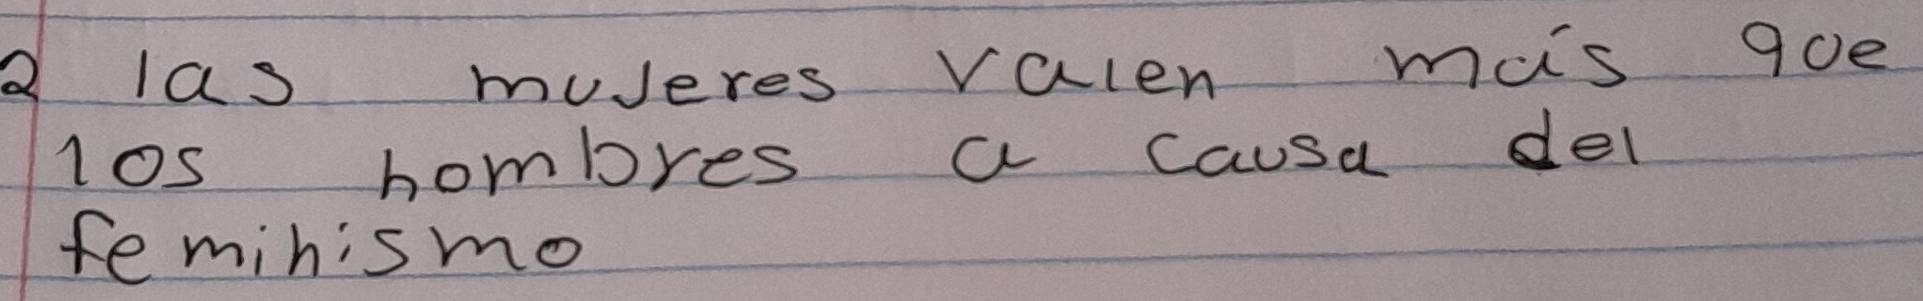 2 las mujeres valen más que
los hombres a causa del
feminismo